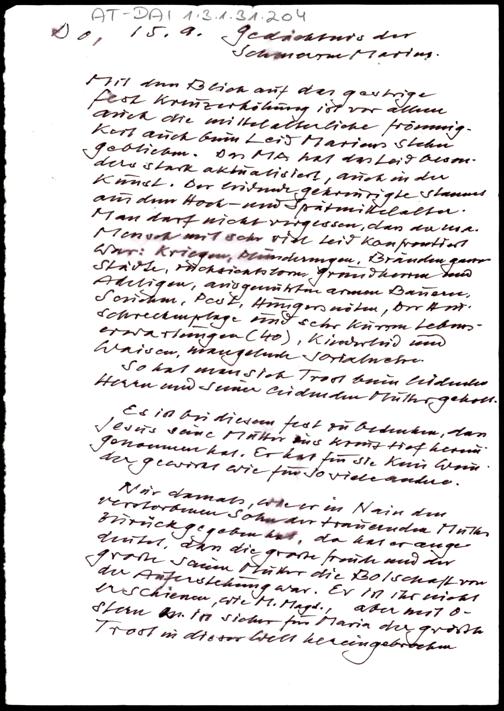 AT-DAI 1.3.1.31.204
Do, 15.9. Gedächtnis der
Schmerzen Mariens.
Mit dem Blick auf das gestrige
Fest Kreuzerhöhung ist vor allem
auch die mittelalterliche Frömmig-
keit auch beim Leid Mariens stehen
geblieben. Das MA hat das Leid beson-
ders stark aktualisiert, auch in der
Kunst. Der leidende gekreuzigte stammt
aus dem Hoch- und Spätmittelalter.
Man darf nicht vergessen, dass der ma.
Mensch mit sehr viel Leid konfrontiert
war: Kriegen, Plünderungen, Bränden ganzer
Städte, rücksichtslosen Grundherrn und
Adeligen, ausgenützten armen Bauern,
Seuchen, Pest, Hungersnöten, Der
Schreckensplage und sehr kurzen Lebens-
erwartungen (40), Kinderleid und
Waisen, mangelnde Sozialnetze.
So hat man sich Trost beim leidenden
Herrn und seiner leidenden Mutter geholt.
Es ist bei diesem Fest zu bedenken, dass
Jesus seine Mutter ins Kreuz tief herein
genommen hat. Er hat für sie kein Wun-
der gewirkt wie für so viele andere.
Nur damals, wie er in Nain den
verstorbenen Sohn der trauernden Mutter
zurückgegeben hat, da hat er ange
deutet, dass die große Freude und der
große seiner Mutter die Botschaft von
der Auferstehung war. Er ist ihr nicht
erschienen, wie M. Magd., aber mit O-
stern ist sicher für Maria der größte
Trost in dieser Welt hereingebrochen